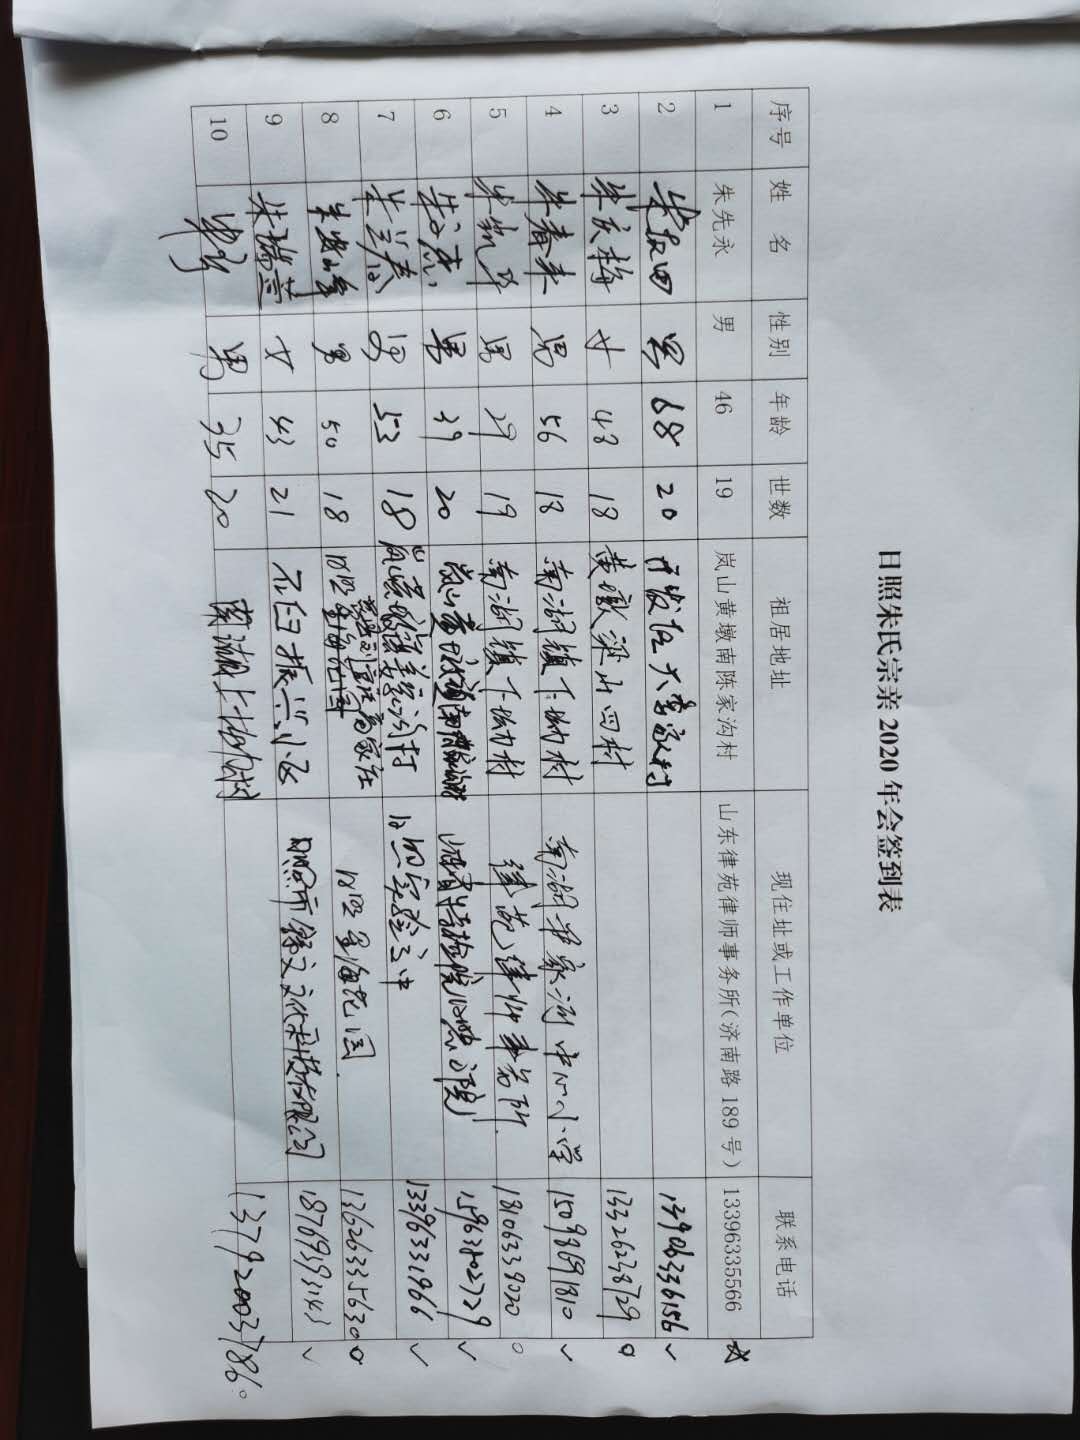 日照朱氏宗亲2020年会签到表
序号 姓名 性别 年龄 世数 祖居地址 现住址或工作单位 联系电话
1 朱先永 男 46 19 岚山黄墩南陈家沟村 山东律苑律师事务所（济南路189号） 13396335566 ☆
2 男 68 20 开发区大李家村 13906336156 ✓
3 朱庆梅 女 48 18 黄墩梁山四村 13326238729 o
4 朱春来 男 56 18 南湖镇下湖村 南湖尹家河中心小学 15098691810 ✓
5 朱凯华 男 29 19 南湖镇下湖村 律苑律师事务所 18106339020 o
6 男 39 20 特检院日照分院 15963802729 ✓
7 朱兰春 男 53 18 日照实验高中 13396331966 ✓
8 男 50 18 日照金海花园 13626335630 o
9 朱瑞萱 女 43 21 石臼振兴小区 18769393143 ✓
10 男 35 20 13792003786 o